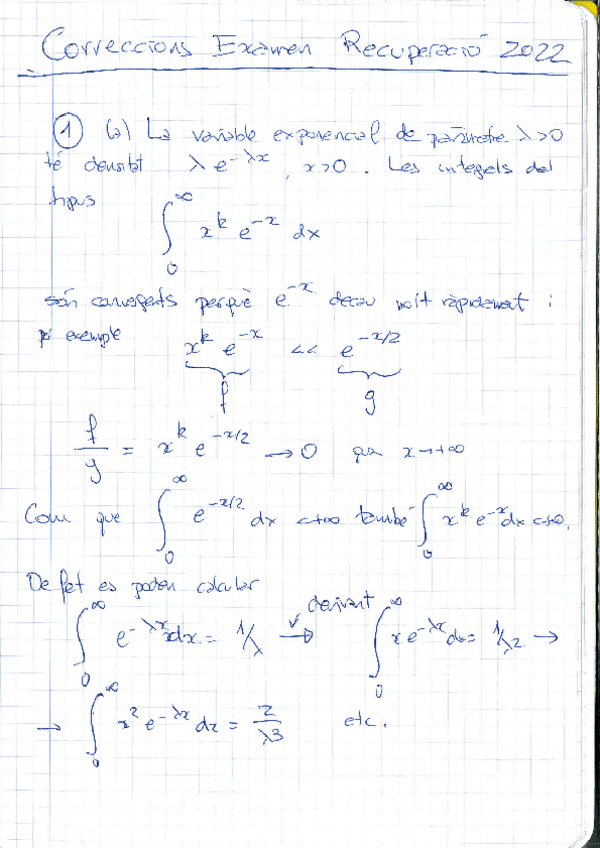 Correccions Examen Recuperació 2022
① (a) La variable exponencial de paràmetre λ>0
té densitat λ e^{-λx}, x>0. Les integrals del
tipus
∫_0^∞ x^k e^{-x} dx
són convergents perquè e^{-x} decau molt ràpidament:
per exemple
x^k e^{-x} << e^{-x/2}
f g
f/g = x^k e^{-x/2} → 0 quan x→+∞
Com que ∫_0^∞ e^{-x/2} dx <+∞ també ∫_0^∞ x^k e^{-x} dx <+∞.
De fet es poden calcular
∫_0^∞ e^{-λx} dx = 1/λ → derivant ∫_0^∞ x e^{-λx} dx = 1/λ2 →
→ ∫_0^∞ x^2 e^{-λx} dx = 2/λ3 etc.